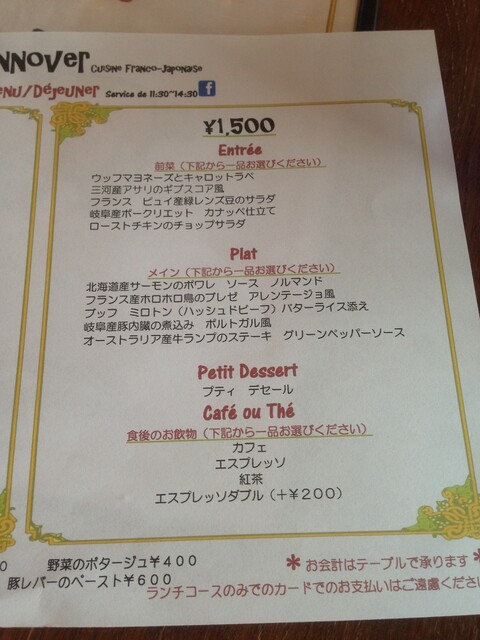 nnover Cuisine Franco-Japonaise
enu/Déjeuner Service de 11:30~14:30 f
¥1,500
Entrée
前菜（下記から一品お選びください）
ウッフマヨネーズとキャロットラペ
三河産アサリのギプスコア風
フランス ピュイ産緑レンズ豆のサラダ
岐阜産ポークリエット カナッペ仕立て
ローストチキンのチョップサラダ
Plat
メイン（下記から一品お選びください）
北海道産サーモンのポワレ ソース ノルマンド
フランス産ホロホロ鳥のブレゼ アレンテージョ風
ブッフ ミロトン（ハッシュドビーフ）バターライス添え
岐阜産豚内臓の煮込み ポルトガル風
オーストラリア産牛ランプのステーキ グリーンペッパーソース
Petit Dessert
プティ デセール
Café ou Thé
食後のお飲物（下記から一品お選びください）
カフェ
エスプレッソ
紅茶
エスプレッソダブル（＋¥200）
0 野菜のポタージュ¥400
豚レバーのペースト¥600
＊お会計はテーブルで承ります＊
ランチコースのみでのカードでのお支払いはご遠慮くださ